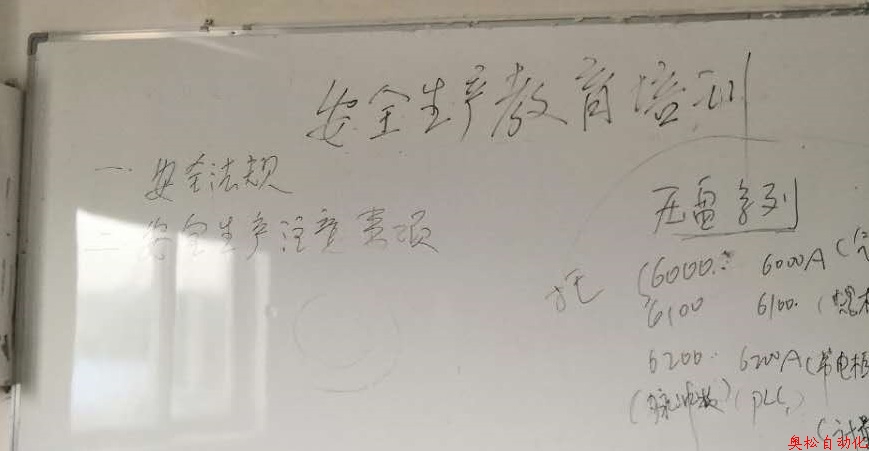 安全生产教育培训
一 安全法规
二 安全生产注意事项
系列
6000: 6000A (
6100 6100. (
6200. 6200A (带电
(脉冲数) (PLC)
奥松自动化